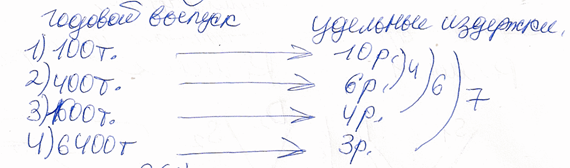 годовой выпуск удельные издержки.
1) 100т. → 10р.
2) 400т. → 6р. 4
3) 1600т. → 4р. 6
4) 6400т → 3р. 7